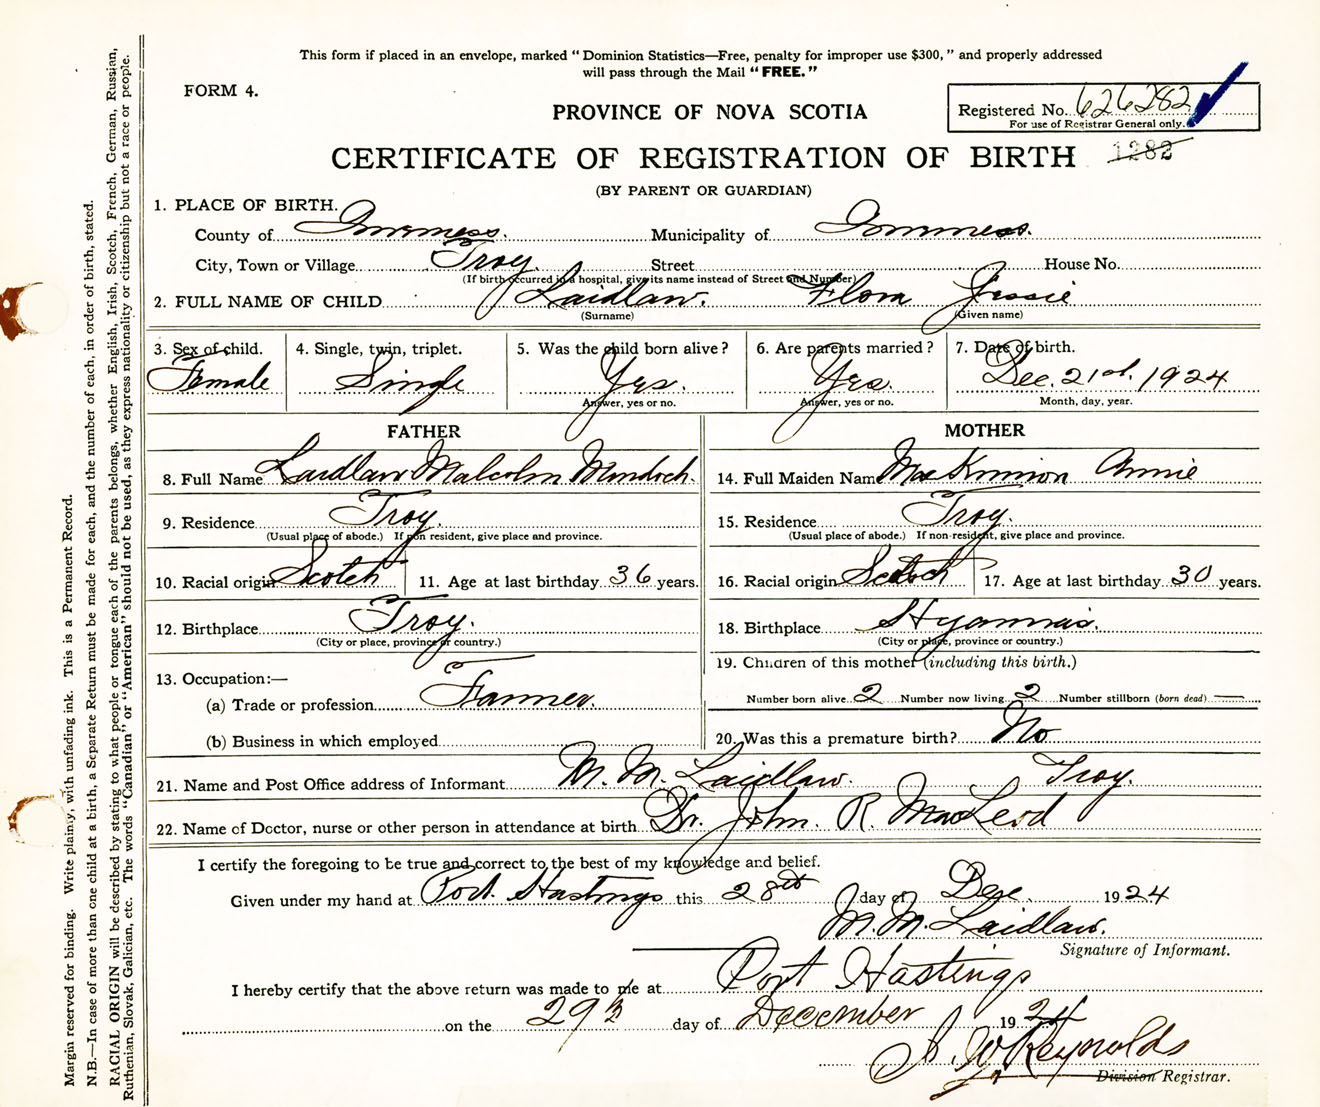 This form if placed in an envelope, marked "Dominion Statistics—Free, penalty for improper use $300," and properly addressed
will pass through the Mail "FREE."
FORM 4.
Registered No. 626282
For use of Registrar General only.
PROVINCE OF NOVA SCOTIA
CERTIFICATE OF REGISTRATION OF BIRTH 1282
(BY PARENT OR GUARDIAN)
1. PLACE OF BIRTH.
County of Inverness. Municipality of Inverness.
City, Town or Village Troy. Street House No.
(If birth occurred in a hospital, give its name instead of Street and Number)
2. FULL NAME OF CHILD Laidlaw. Flora Jessie
(Surname) (Given name)
3. Sex of child. 4. Single, twin, triplet. 5. Was the child born alive? 6. Are parents married? 7. Date of birth.
Female Single Yes. Yes. Dec. 21st. 1924
Answer, yes or no. Answer, yes or no. Month, day, year.
FATHER MOTHER
8. Full Name Laidlaw Malcolm Murdoch. 14. Full Maiden Name MacKinnon Annie
9. Residence Troy. 15. Residence Troy.
(Usual place of abode.) If non resident, give place and province. (Usual place of abode.) If non-resident, give place and province.
10. Racial origin Scotch 11. Age at last birthday 36 years. 16. Racial origin Scotch 17. Age at last birthday 30 years.
12. Birthplace Troy. 18. Birthplace Hyannis.
(City or place, province or country.) (City or place, province or country.)
19. Children of this mother (including this birth.)
13. Occupation:—
(a) Trade or profession Farmer. Number born alive 2 Number now living 2 Number stillborn (born dead) —
(b) Business in which employed 20. Was this a premature birth? No
21. Name and Post Office address of Informant M. M. Laidlaw. Troy.
22. Name of Doctor, nurse or other person in attendance at birth Dr. John. R. MacLeod
I certify the foregoing to be true and correct to the best of my knowledge and belief.
Given under my hand at Port Hastings this 28th day of Dec. 1924
M. M. Laidlaw.
Signature of Informant.
I hereby certify that the above return was made to me at Port Hastings
on the 29 day of December 1924
Reynolds
Division Registrar.
Margin reserved for binding. Write plainly, with unfading ink. This is a Permanent Record.
N.B.—In case of more than one child at a birth, a Separate Return must be made for each, and the number of each, in order of birth, stated.
RACIAL ORIGIN will be described by stating to what people or tongue each of the parents belongs, whether English, Irish, Scotch, French, German, Russian,
Ruthenian, Slovak, Galician, etc. The words "Canadian" or "American" should not be used, as they express nationality or citizenship but not a race or people.